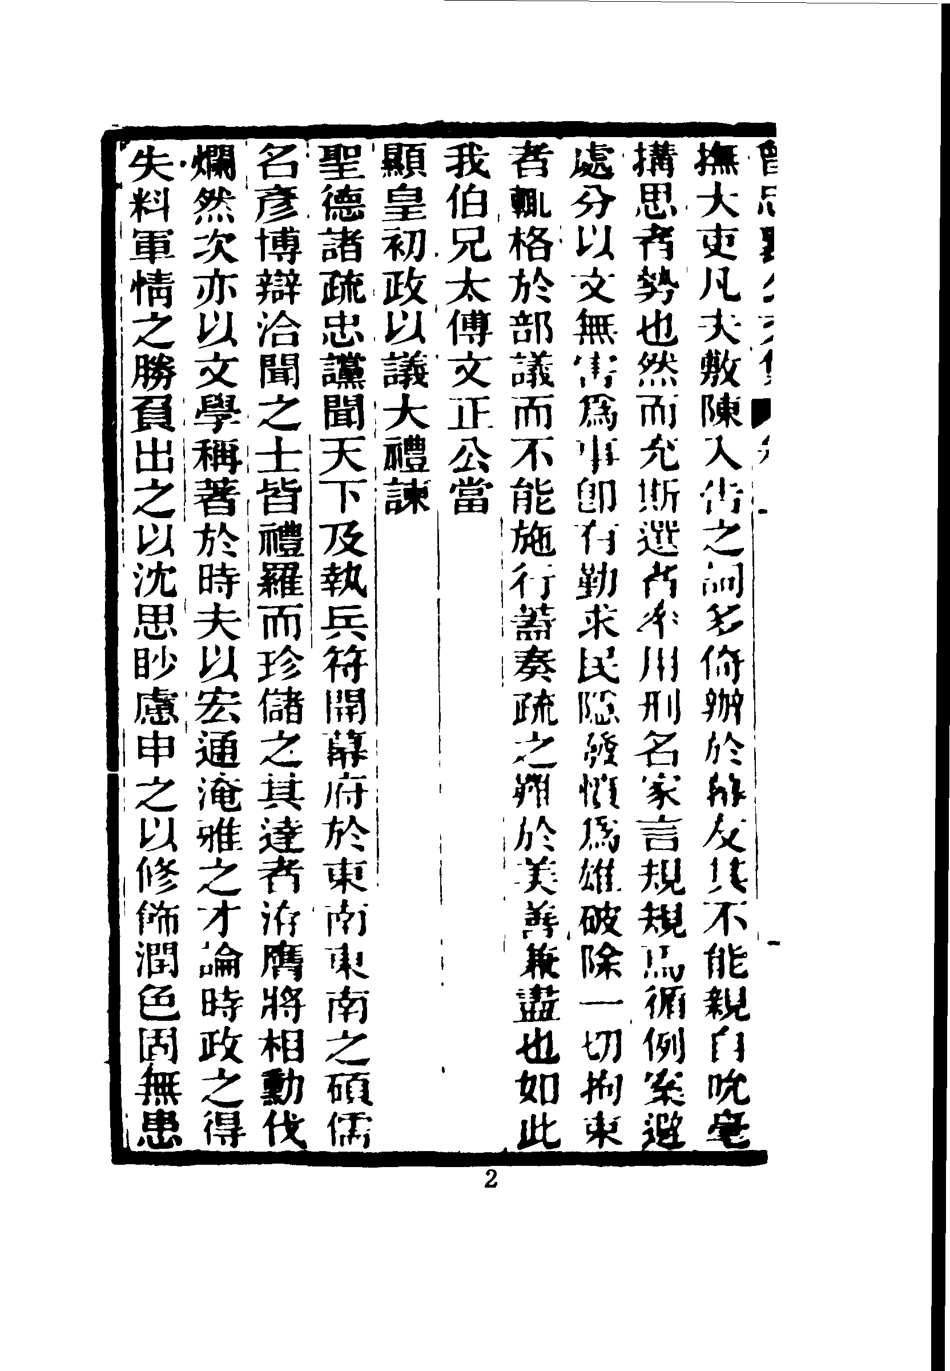 撫大吏凡夫敷陳入告之詞多倚辦於幕友其不能親自吮毫
搆思者勢也然而充斯選者率用刑名家言規規焉循例案避
處分以文無害爲事卽有勤求民隱發憤爲雄破除一切拘束
者輒格於部議而不能施行蓋奏疏之難於美善兼盡也如此
我伯兄太傅文正公當
顯皇初政以議大禮諫
聖德諸疏忠讜聞天下及執兵符開幕府於東南東南之碩儒
名彥博辯洽聞之士皆禮羅而珍儲之其達者洊膺將相勳伐
爛然次亦以文學稱著於時夫以宏通淹雅之才論時政之得
失料軍情之勝負出之以沈思眇慮申之以修飾潤色固無患
2